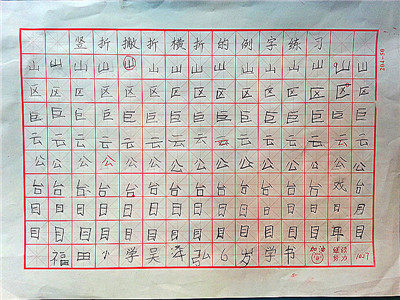 竖折撇折横折的例字练习
山山山山山山山山山山山山山山山
区区区区区区区区区区区区区区区
巨巨巨巨巨巨巨巨巨巨巨巨巨巨巨
云云云云云云云云云云云云云云云
公公公公公公公公公公公公公公公
台台台台台台台台台台台台台戏台
目目目目目目目目目目目目目日月
目目目目目目目目目目目目目再目
福田小学吴泽弘6岁学书 加油 继续努力 1027